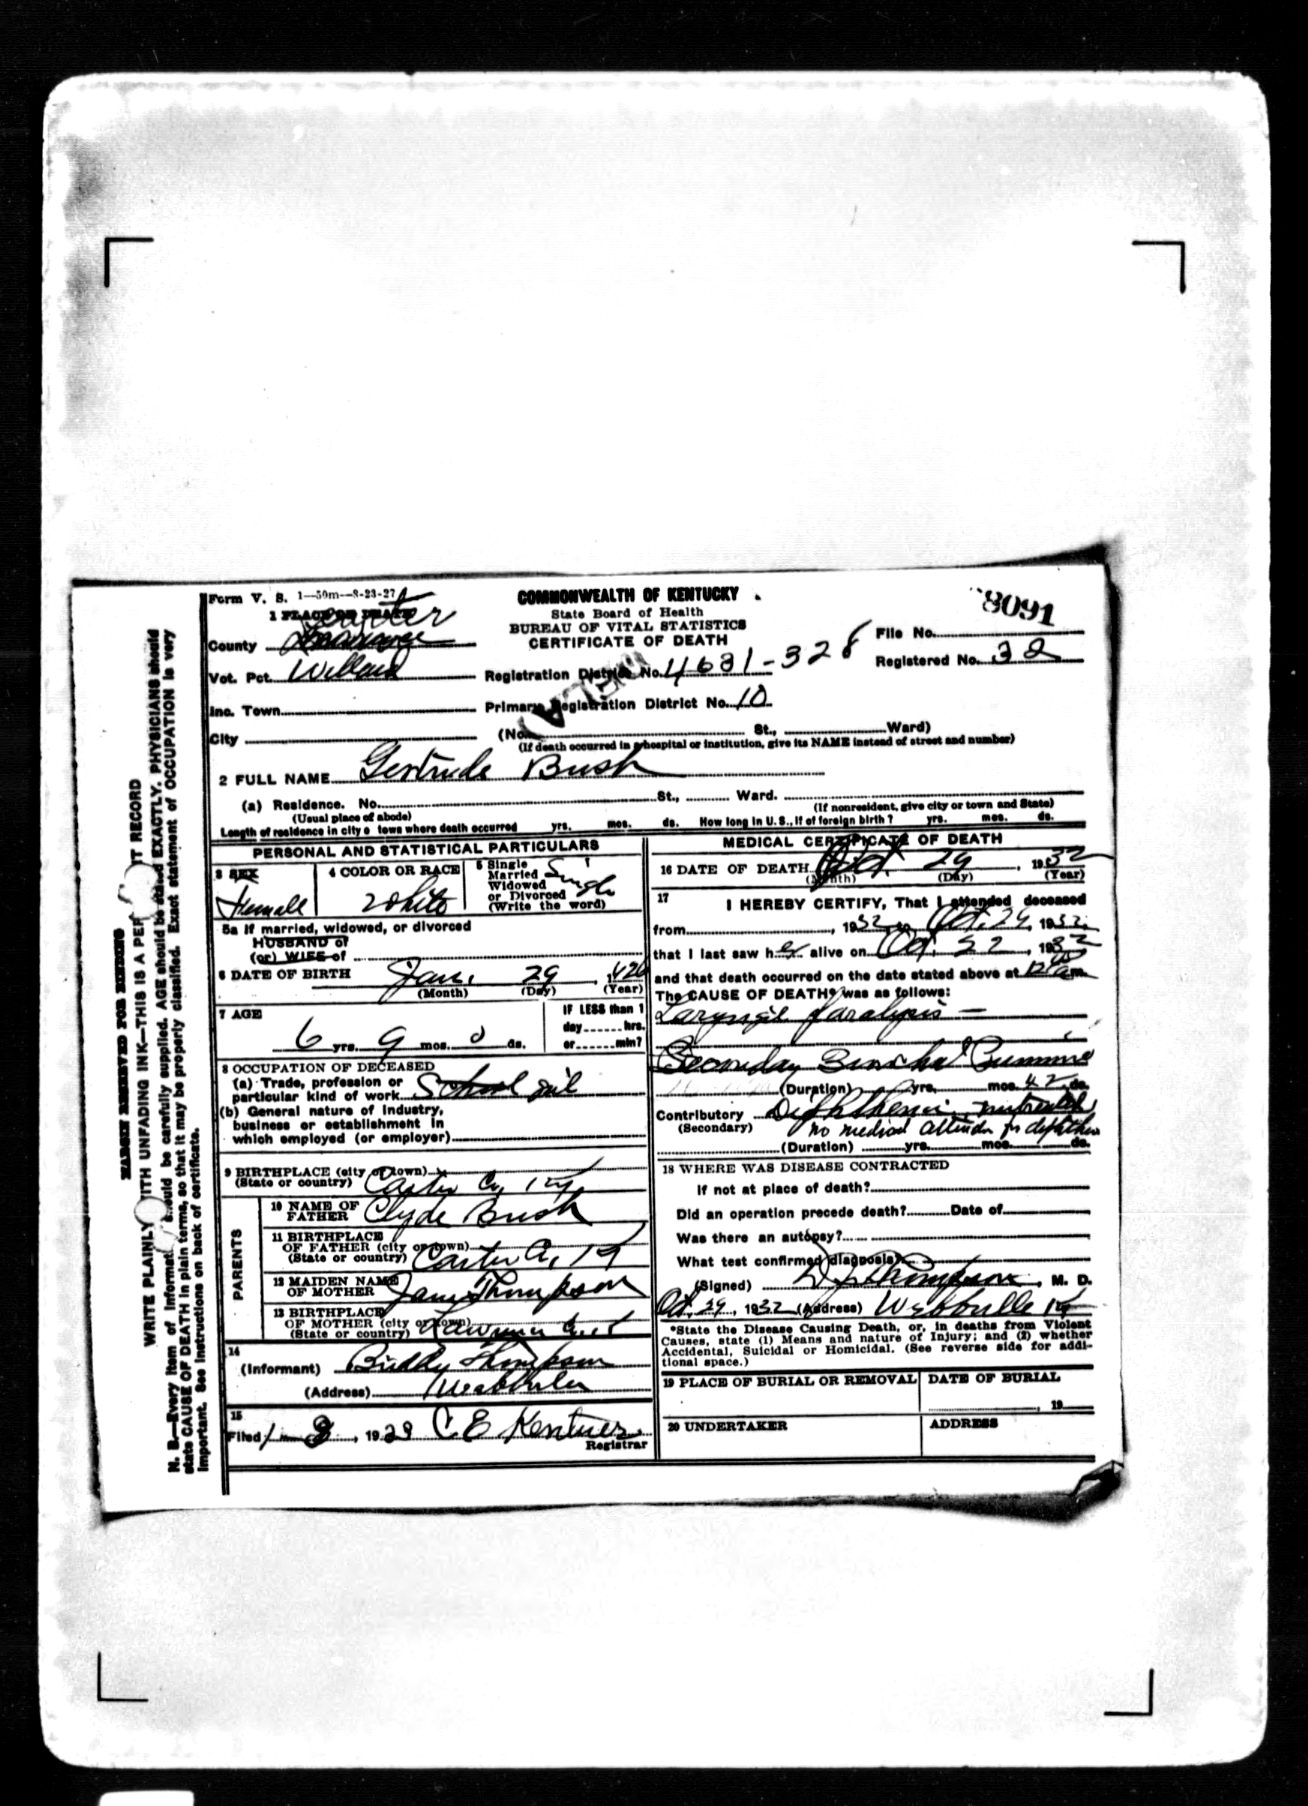 Form V. S. 1—50m—8-23-27
COMMONWEALTH OF KENTUCKY
State Board of Health
BUREAU OF VITAL STATISTICS
CERTIFICATE OF DEATH
8091
File No.
Registered No. 32
1 PLACE OF DEATH
Carter
County Lawrence
Vot. Pct. Willard
Registration District No. 4631-328
Inc. Town
Primary Registration District No. 10
City
(No. St., Ward)
(If death occurred in a hospital or institution, give its NAME instead of street and number)
2 FULL NAME Gertrude Bush
(a) Residence. No. St., Ward.
(Usual place of abode) (If nonresident, give city or town and State)
Length of residence in city or town where death occurred yrs. mos. ds. How long in U. S., if of foreign birth? yrs. mos. ds.
PERSONAL AND STATISTICAL PARTICULARS
3 SEX
Female
4 COLOR OR RACE
White
5 Single
Married
Widowed
or Divorced
(Write the word)
Single
5a If married, widowed, or divorced
HUSBAND of
(or) WIFE of
6 DATE OF BIRTH Jan. 29
(Month) (Day) (Year)
7 AGE
6 yrs. 9 mos. 0 ds.
IF LESS than 1
day hrs.
or min?
8 OCCUPATION OF DECEASED
(a) Trade, profession or
particular kind of work School girl
(b) General nature of industry,
business or establishment in
which employed (or employer)
9 BIRTHPLACE (city or town)
(State or country) Carter Co, Ky
PARENTS
10 NAME OF
FATHER Clyde Bush
11 BIRTHPLACE
OF FATHER (city or town)
(State or country) Carter Co, Ky
12 MAIDEN NAME
OF MOTHER Jane Thompson
13 BIRTHPLACE
OF MOTHER (city or town)
(State or country) Lawrence Co
14
(Informant) Buddy Thompson
(Address) Webbville
15
Filed 1 1929 C E
Registrar
MEDICAL CERTIFICATE OF DEATH
16 DATE OF DEATH Oct. 29, 1932
(Month) (Day) (Year)
17 I HEREBY CERTIFY, That I attended deceased
from , 1932 to Oct. 29, 1932
that I last saw her alive on Oct. 22, 1932
and that death occurred on the date stated above at am
The CAUSE OF DEATH* was as follows:
Laryngil Paralysis —
Seconday Bronchal
(Duration) yrs. mos. ds.
Contributory Diphtheria untreated
(Secondary) no medical attender for diphtheria
(Duration) yrs. mos. ds.
18 WHERE WAS DISEASE CONTRACTED
If not at place of death?
Did an operation precede death? Date of
Was there an autopsy?
What test confirmed diagnosis?
(Signed) Thompson, M. D.
Oct. 29, 1932 (Address) Webbville Ky
*State the Disease Causing Death, or, in deaths from Violent
Causes, state (1) Means and nature of Injury; and (2) whether
Accidental, Suicidal or Homicidal. (See reverse side for addi-
tional space.)
19 PLACE OF BURIAL OR REMOVAL
DATE OF BURIAL
19
20 UNDERTAKER
ADDRESS
MARGIN RESERVED FOR BINDING
WRITE PLAINLY WITH UNFADING INK—THIS IS A PER T RECORD
N. B.—Every item of informat should be carefully supplied. AGE should be stated EXACTLY. PHYSICIANS should
state CAUSE OF DEATH in plain terms, so that it may be properly classified. Exact statement of OCCUPATION is very
important. See instructions on back of certificate.